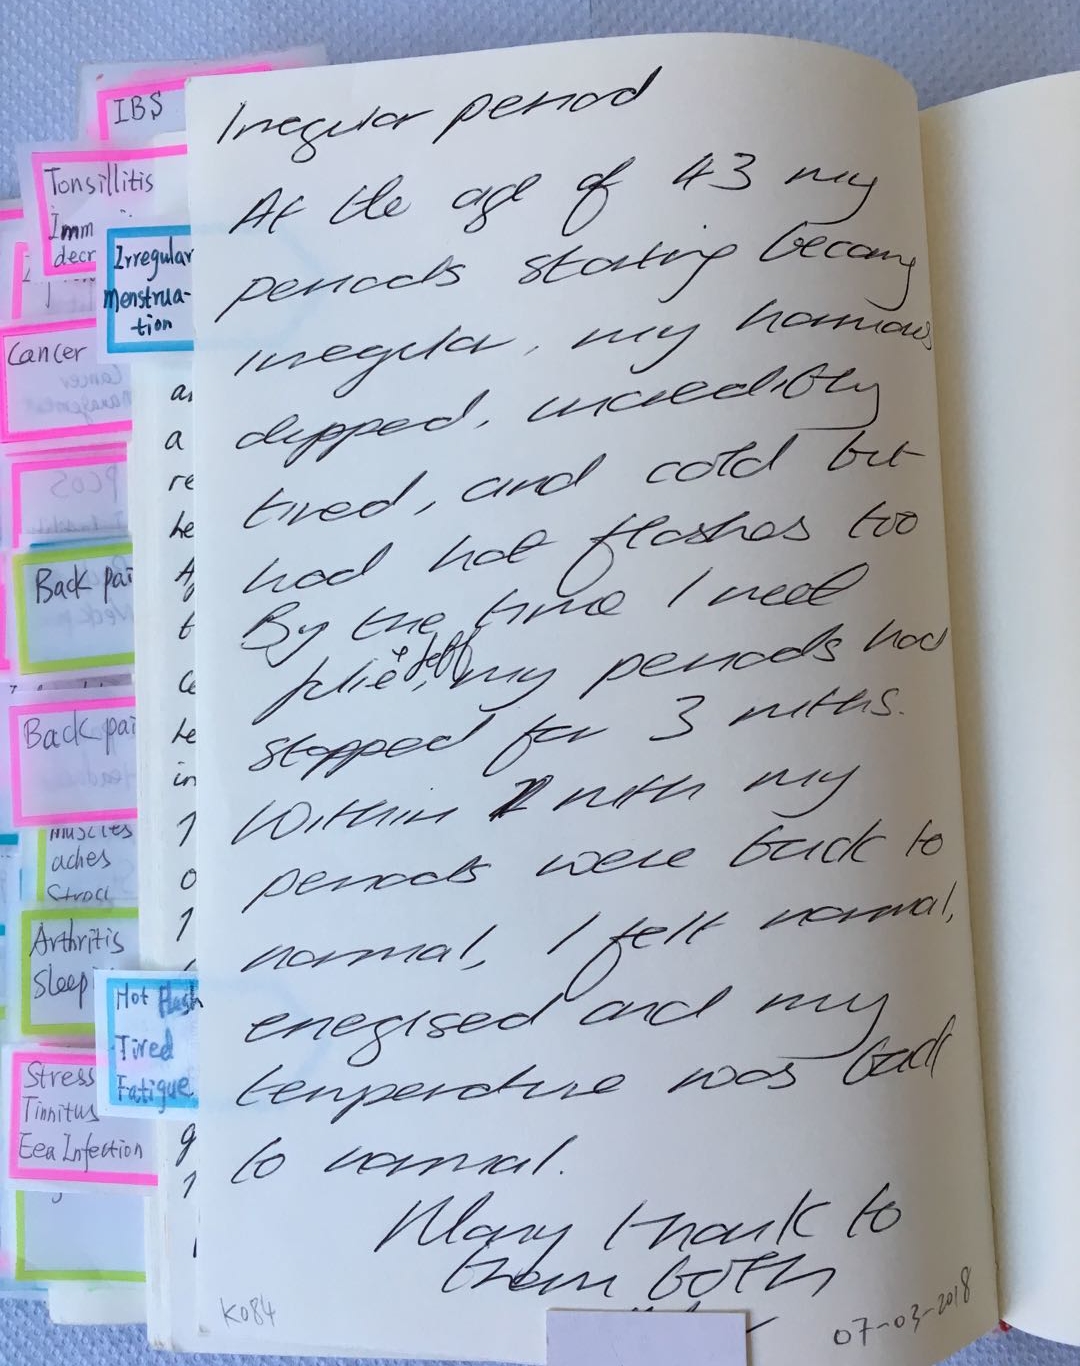 IBS
Tonsillitis
Imm
decr
Irregular
Menstrua-
tion
Cancer
PCOS
Back pai
Back pai
Muscles
aches
Arthritis
Sleep
Hot Flash
Tired
Fatigue
Stress
Tinnitus
Eea Infection
Irregular period
At the age of 43 my
periods starting becomg
irregular, my hormones
dipped, incredibly
tired, and cold but
had hot flashes too
By the time I meet
Julie + Jeff, my periods had
stopped for 3 mths.
Within 1 mth my
periods were back to
normal, I felt normal,
enegised and my
temperature was back
to normal.
Many thank to
them both
K084
07-03-2018